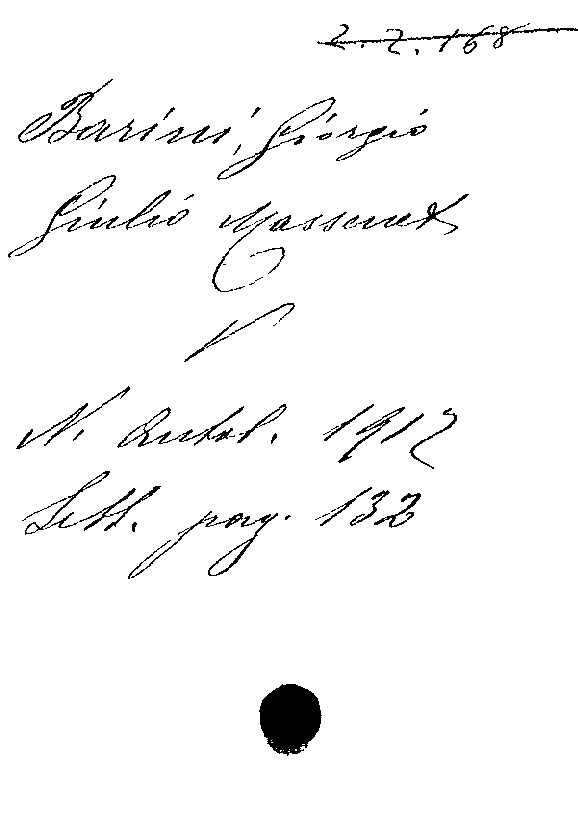 2.2.168
Barini, Giorgio
Giulio Massenet
N. Antol. 1912
Sett. pag. 132